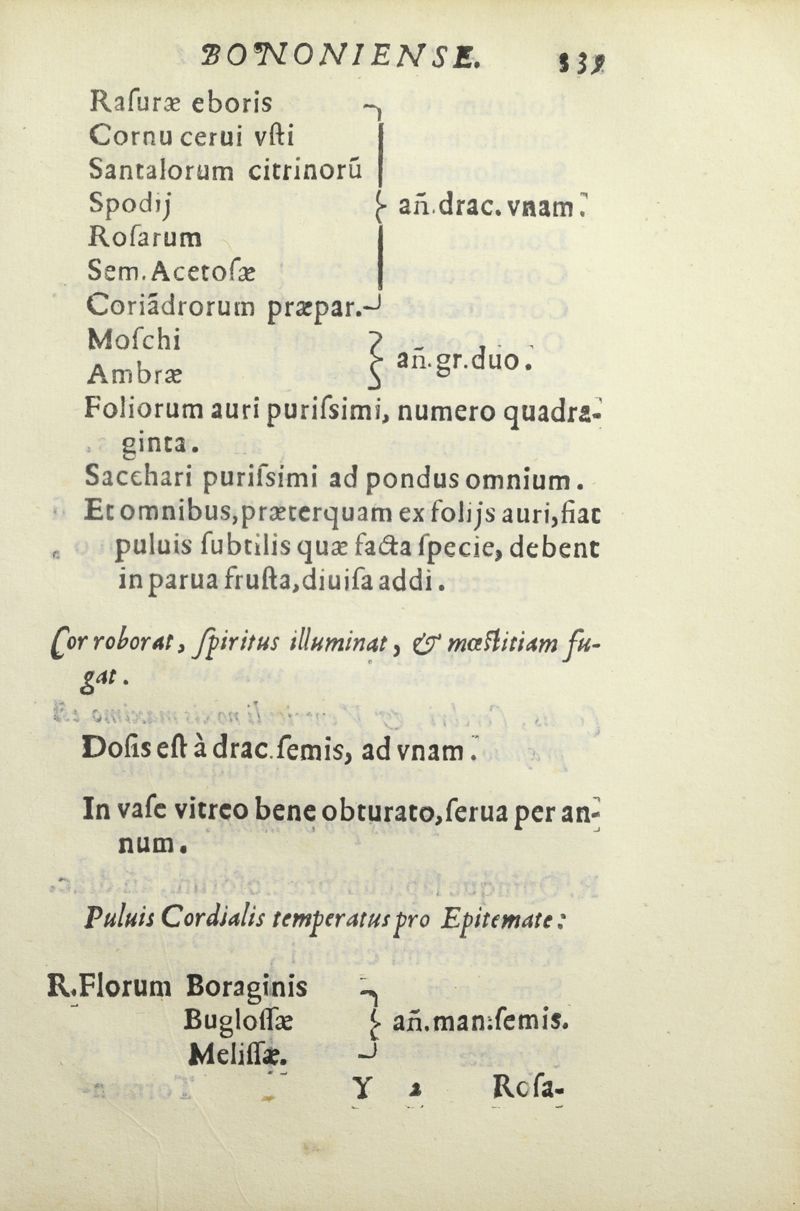 BONONIENSE. 339
Raſuræ eboris
Cornu cerui vſti
Santalorum citrinorũ
Spodij
añ.drac.vnam.
Roſarum
Sem.Acetoſæ
Coriãdrorum præpar.
Moſchi
añ.gr.duo.
Ambræ
Foliorum auri puriſsimi, numero quadra-
ginta.
Sacchari puriſsimi ad pondus omnium.
Et omnibus,præterquam ex folijs auri,fiat
puluis ſubtilis quæ facta ſpecie, debent
in parua fruſta,diuiſa addi.
Cor roborat, ſpiritus illuminat, & mœſtitiam fu-
gat.
Doſis eſt à drac.ſemis, ad vnam.
In vaſe vitreo bene obturato,ſerua per an-
num.
Puluis Cordialis temperatus pro Epitemate:
R.Florum Boraginis
Bugloſſæ añ.man.ſemis.
Meliſſæ.
Y 2 Roſa-